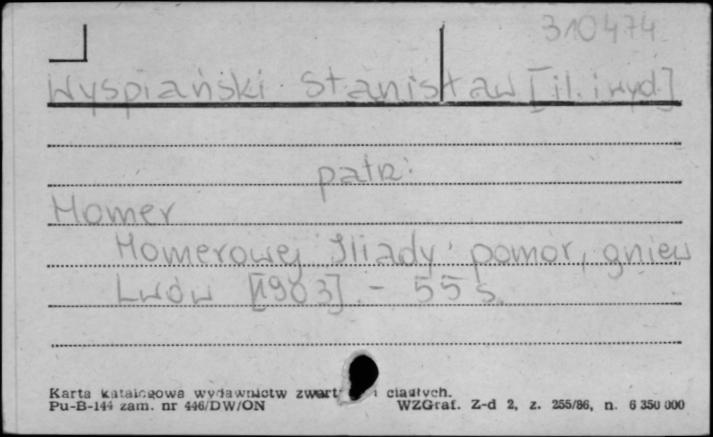 310474
Wyspiański Stanisław [il. i wyd.]
patrz:
Homer
Homerowej Iliady: pomór, gniew
Lwów [1903]. - 55 s.
Karta katalogowa wydawnictw zwart i ciągłych.
Pu-B-144 zam. nr 446/DW/ON WZGraf. Z-d 2, z. 255/86, n. 6 350 000